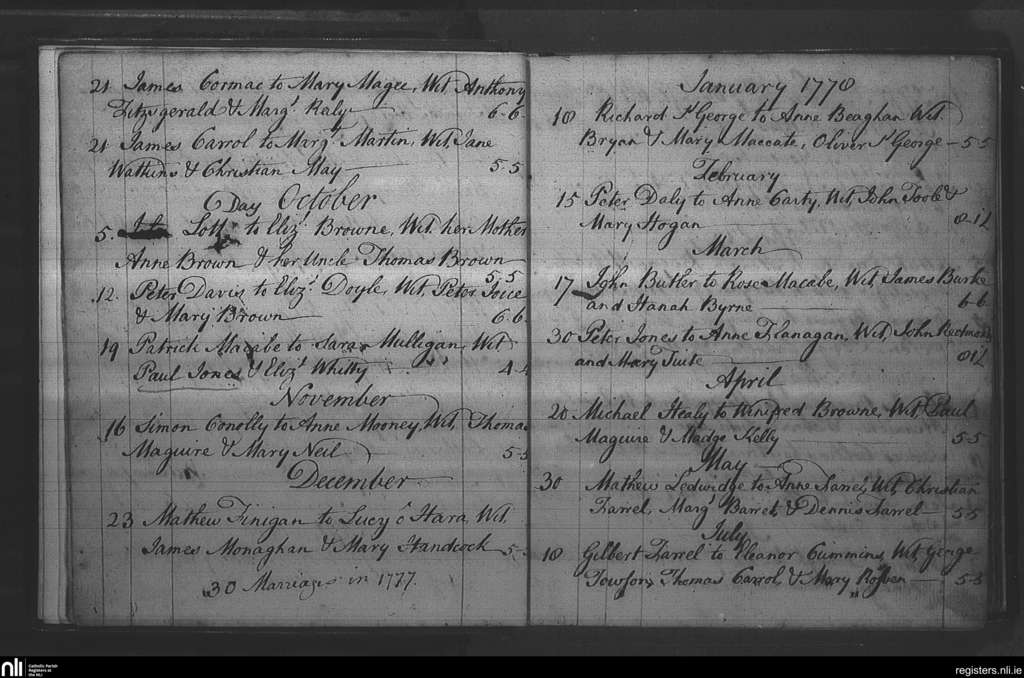 21 James Cormac to Mary Magee, Wit, Anthony
Fitzsgerald & Marg.t Raly 6-6
21 James Carrol to Marg.t Martin, Wit, Jane
Watkins & Christian May 5-5
Day October
5. Lott to Eliz.t Browne, Wit, her Mother
Anne Brown & her Uncle Thomas Brown
5-5
12. Peter Davis to Eliz.t Doyle, Wit Peter Joice
& Mary Brown 6-6
19 Patrick Macabe to Sara Mulligan, Wit
Paul Jones & Eliz.t Whitty 4-4
November
16 Simon Conolly to Anne Mooney, Wit, Thomas
Maguire & Mary Neil 5-5
December
23 Mathew Finigan to Lucy ó Hara, Wit,
James Monaghan & Mary Handcock 5-
30 Marriages in 1777.
January 1778
18 Richard S.t George to Anne Beaghan Wit.
Bryan & Mary Maccate, Oliver S.t George - 5-5
February
15 Peter Daly to Anne Carty, Wit, John Toole &
Mary Hogan
March
17 John Butler to Rose Macabe, Wit, James Burke
and Hanah Byrne 6-6
30 Peter Jones to Anne Flanagan, Wit, John Redmond
and Mary Tuite
April
20 Michael Healy to Winifred Browne, Wit, Paul
Maguire & Madge Kelly 5-5
May
30 Mathew Ledwidge to Anne Wit, Christian
Farrel, Marg.t Barret, & Dennis Farrel 5-5
July
18 Gilbert Farrel to Eleanor Cummins, Wit, George
Thomas Carrol, & Mary 5-5
nli
Catholic Parish
Registers at
the NLI
registers.nli.ie